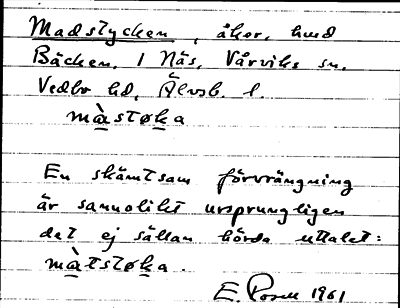 Madstycken, åker, hmd
Bäcken. 1 Näs, Vårviks sn.
Vedbo hd, Älvsb. l.
màstøka
En skämtsam förvrängning
är sannolikt ursprungligen
det ej sällan hörda uttalet:
màtstøka.
E. 1961